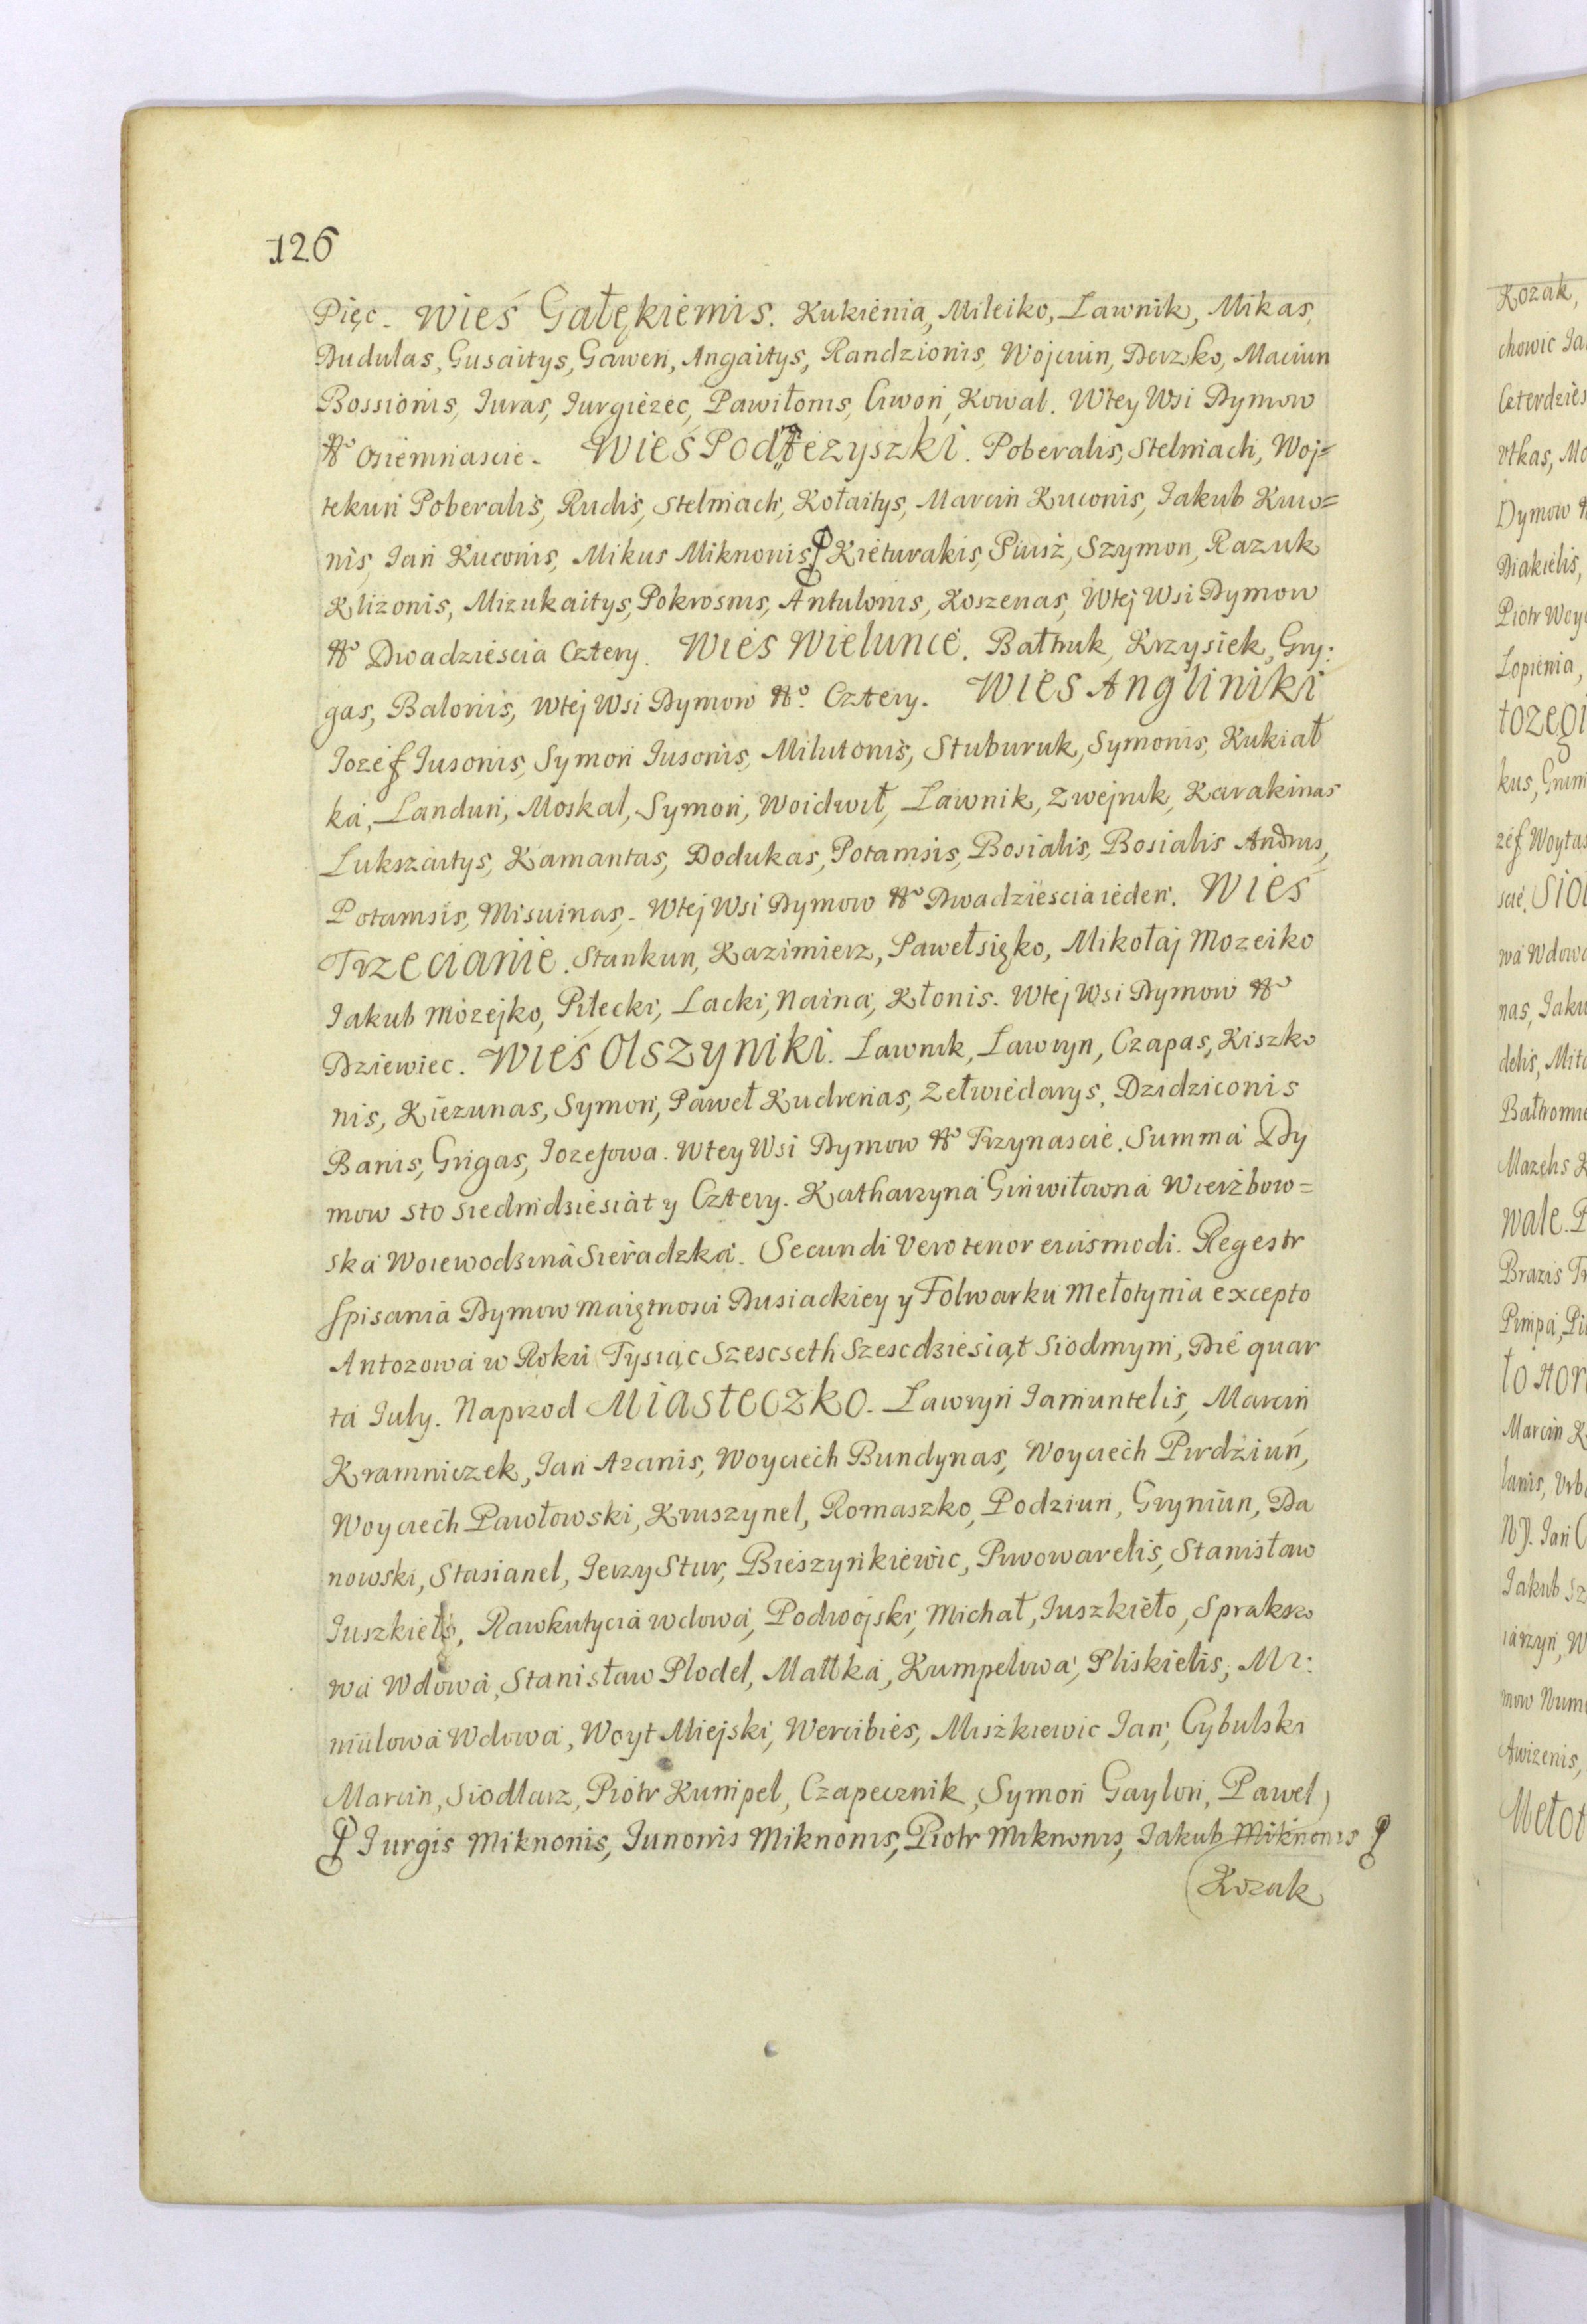 126
Pięc. Wieś Gałękiemis. Kukienia, Mileiko, Ławnik, Mikas,
Dudulas, Gusaitys, Gawen, Angaitys, Randzionis, Wojciun, Derzko, Maciun
Bossionis, Juras, Jurgiezec, Pawiłonis, Ciwoń, Kowal. Wtey Wsi Dymow
No Osiemnascie. Wieś Podłezyszki. Poberalis, Stelmach, Woj=
tekun Poberalis, Rudis, Stelmach, Kołaitys, Marcin Kuconis, Jakub Kuco=
nis, Jan Kuconis, Mikus Miknonis, Kieturakis, Piusz, Szymon, Razuk
Klizonis, Mizukaitys, Pokrosnis, Antulonis, Koszenas, Wtej Wsi Dymow
No Dwadziescia Cztery. Wieś Wielunce. Bałtruk, Krzysiek, Gry:
gas, Balonis, Wtej Wsi Dymow No. Cztery. Wieś Angliniki
Jozef Jusonis, Symon Jusonis, Milutonis, Stuburuk, Symonis, Kukiał
ka, Landun, Moskal, Symon, Woidwił, Ławnik, Zwejnik, Karakinas
Lukszaitys, Kamantas, Dodukas, Potamsis, Bosialis, Bosialis Andrus,
Potamsis, Misuinas,. Wtej Wsi Dymow No Dwadziescia ieden. Wieś
Trzecianie. Stankun, Kazimierz, Pawełsięko, Mikołaj Mozeiko
Jakub Możejko, Piłecki, Lacki, Naina, Kłonis. Wtej Wsi Dymow No
Dziewiec. Wieś Olszyniki. Ławnik, Lawryn, Czapas, Kiszko
nis, Kiezunas, Symon, Paweł Kudrenas, Zełwiedarys, Dzidziconis
Banis, Grigas, Jozefowa. Wtey Wsi Dymow No Trzynascie. Summa Dy
mow sto siedmdziesiąt y Cztery. Katharzyna Ginwiłowna Wierżbow=
ska Woiewodzina Sieradzka. Secundi Vero tenor eiusmodi. Regestr
spisania Dymow maiętnosci Dusiackiey y Folwarku Mełotynia excepto
Antozowa w Roku Tysiąc Szescseth Szescdziesiąt Siodmym, Die quar
ta July. Naprzod Miasteczko. Lawryn Jamuntelis, Marcin
Kramniczek, Jan Azanis, Woyciech Bundynas, Woyciech Pirdziuń,
Woyciech Pawłowski, Kruszynel, Romaszko, Podziun, Grymun, Da
nowski, Stasianel, Jerzy Stur, Bieszynkiewic, Piwowarelis, Stanisław
Juszkieło, Rawkutycia wdowa, Podwojski, Michał, Juszkieło, Sprakso
wa Wdowa, Stanisław Plodel, Matka, Kumpelowa, Pliskielis, Mi:
niulowa Wdowa, Woyt Miejski, Wercibies, Miszkiewic Jan, Cybulski
Marcin, Siodlarz, Piotr Kumpel, Czapecznik, Symon Gaylon, Pawel,
Jurgis Miknonis, Junonis Miknonis, Piotr Miknonis, Jakub Miknonis
Kozak